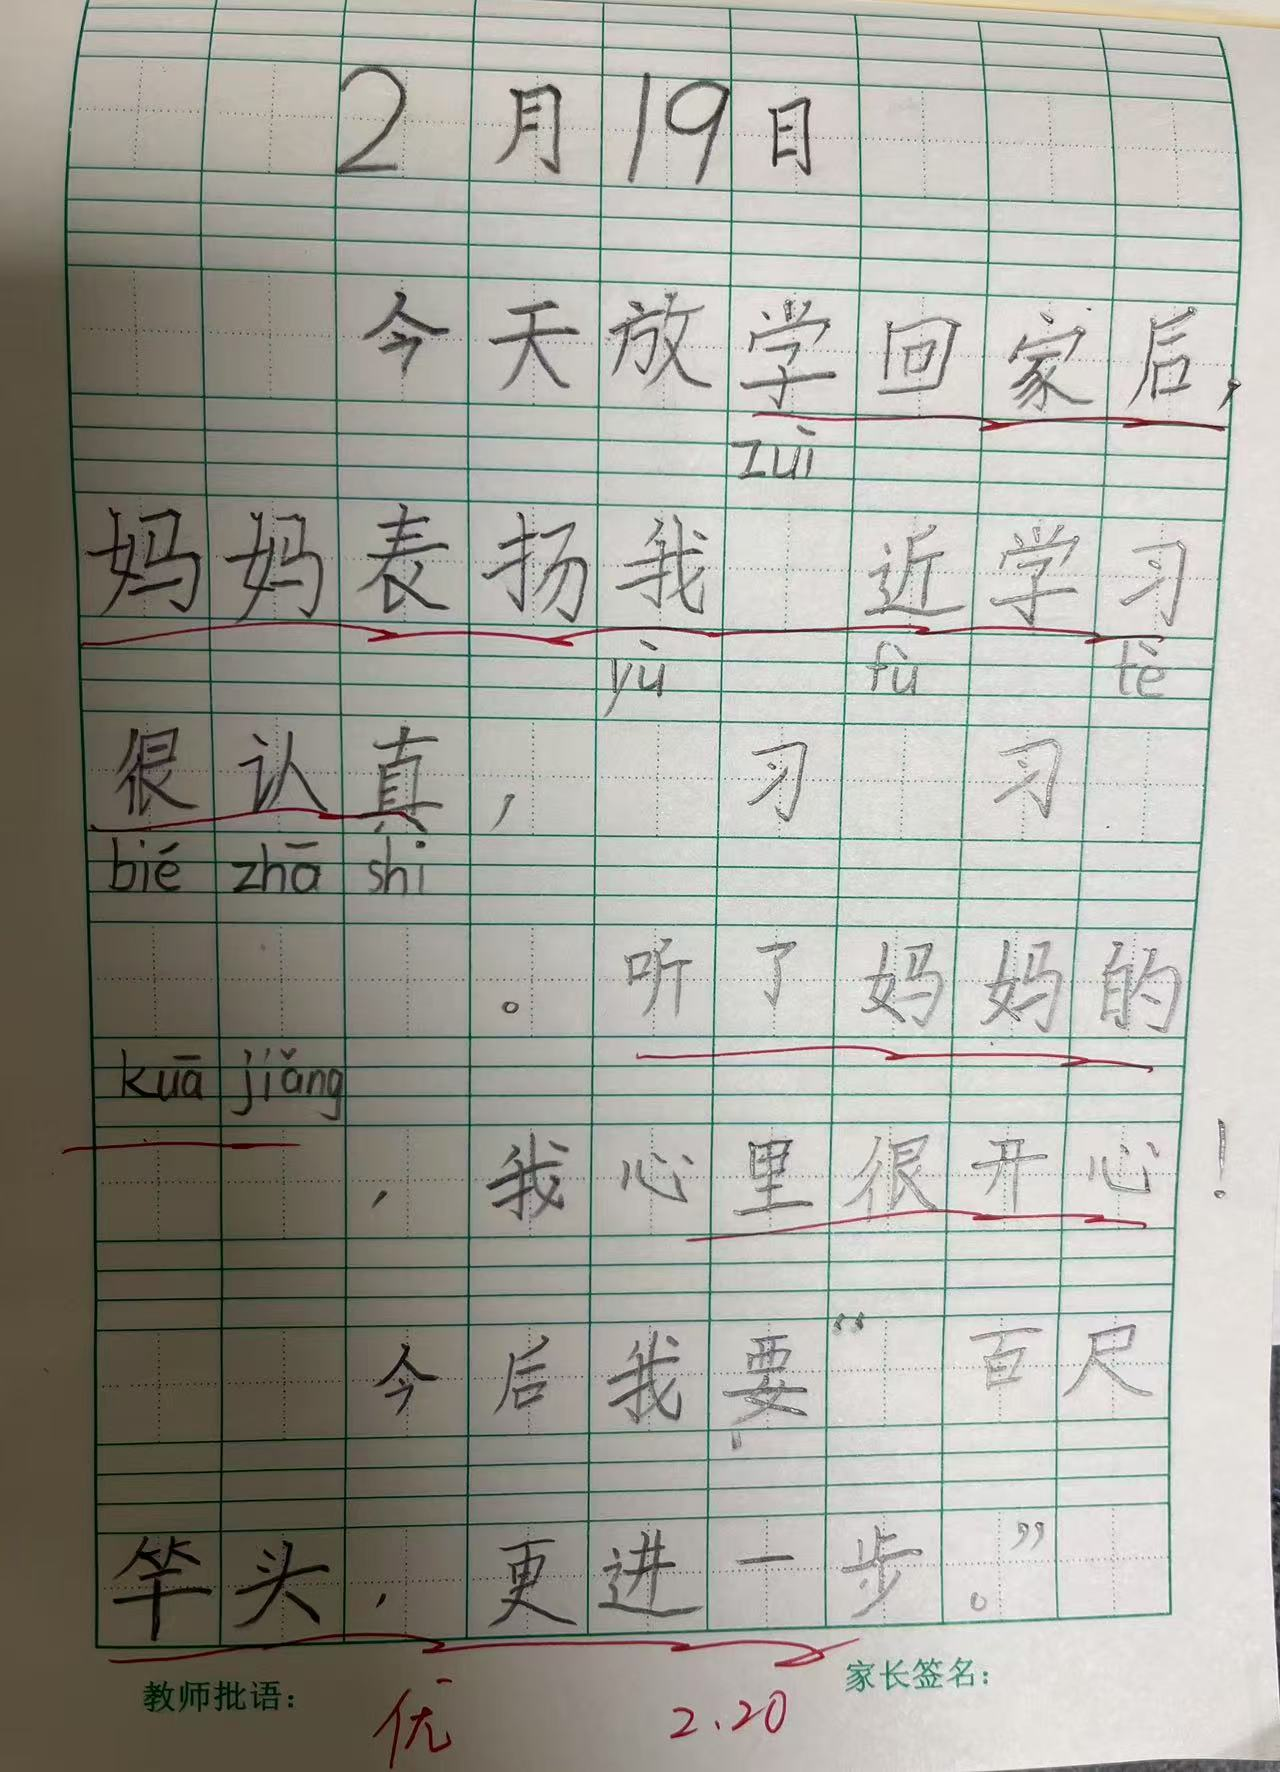 2月19日
今天放学回家后，
zuì
妈妈表扬我 近学习
yù fù tè
很认真， 习 习
bié zhā shi
。听了妈妈的
kuā jiǎng
，我心里很开心！
今后我要“百尺
竿头，更进一步。”
教师批语：
家长签名：
优 2.20